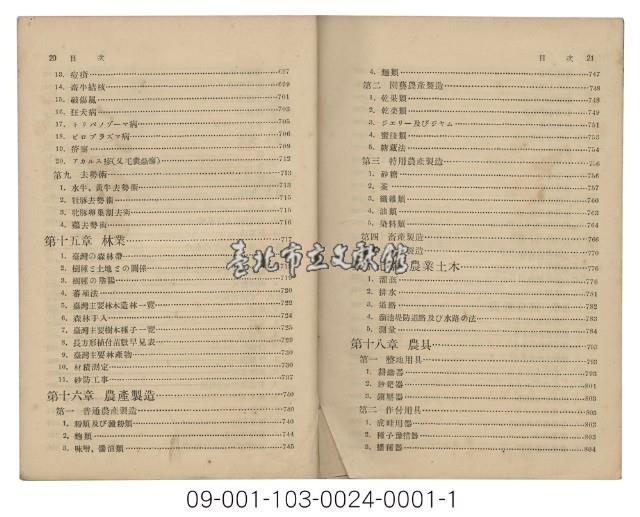 20 目 次
13. 痘瘡 697
14. 畜牛結核 699
15. 破傷風 701
16. 狂犬病 703
17. トリパノゾーマ病 705
18. ピロプラズマ病 706
19. 疥癬 709
20. アカルス疹(又毛囊蟲癬) 712
第九 去勢術 713
1. 水牛、黃牛去勢術 713
2. 牡豚去勢術
3. 牝豚卵巢割去術
4. 鷄去勢術 716
第十五章 林業
1. 臺灣の森林帶
2. 樹種と土地との關係
3. 樹種の陰陽
4. 蕃殖法
5. 臺灣主要林木造林一覽 722
6. 森林手入 724
7. 臺灣主要樹木種子一覽 725
8. 長方形植付苗數早見表 729
9. 臺灣主要林產物 730
10. 材積測定 730
11. 砂防工事
第十六章 農產製造 740
第一 普通農產製造 740
1. 粉類及び澱粉類 740
2. 麴類 744
3. 味噌、醬油類 745
目 次 21
4. 麵類 747
第二 園藝農產製造 748
1. 乾果類 748
2. 乾菜類
3. ジエリー及びジヤム 751
4. 蜜餞類
5. 糖藏法 754
第三 特用農產製造 756
1. 砂糖 756
2. 茶
3. 纖維類
4. 油類
5. 染料類
第四 畜產製造 770
製造 770
農業土木 776
1. 灌漑 776
2. 排水 781
3. 道路 782
4. 溜池堤防道路及び水路の法 783
5. 測量 784
第十八章 農具 793
第一 整地用具 793
1. 耕鋤器 793
2. 砂耙器 801
3. 鎭壓器 803
第二 作付用具 803
1. 成畦用器 803
2. 種子豫措器 803
3. 播種器 804
臺北市立文獻館
09-001-103-0024-0001-1